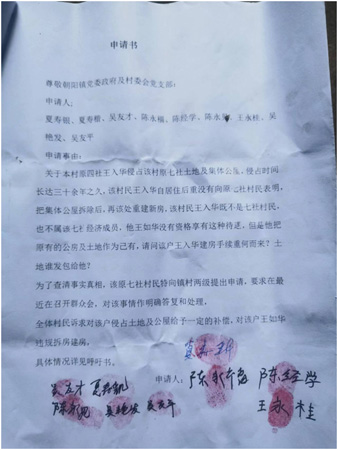 申请书
尊敬朝阳镇党委政府及村委会党支部：
申请人：
夏寿银、夏寿榕、吴友才、陈永福、陈经学、陈永、王永桂、吴
艳发、吴友平
申请事由：
关于本村原四社王入华侵占该村原七社土地及集体公屋，侵占时间
长达三十余年之久，该村民王入华自居住后重没有向原七社村民表明，
把集体公屋拆除后，再该处重建新房，该村民王入华既不是七社村民，
也不属该七社经济成员，他王如华没有资格享有这种待遇，但是他把
原有的公房及土地作为己有，请问该户王入华建房手续重何而来？土
地谁发包给他？
为了查清事实真相，该原七社村民特向镇村两级提出申请，要求在最
近在召开群众会，对该事情作明确答复和处理，
全体村民诉求对该户侵占土地及公屋给予一定的补偿，对该户王如华
违规拆房建房。
具体情况详见呼吁书。
申请人：
陈经学
吴友才
王永桂
吴友平